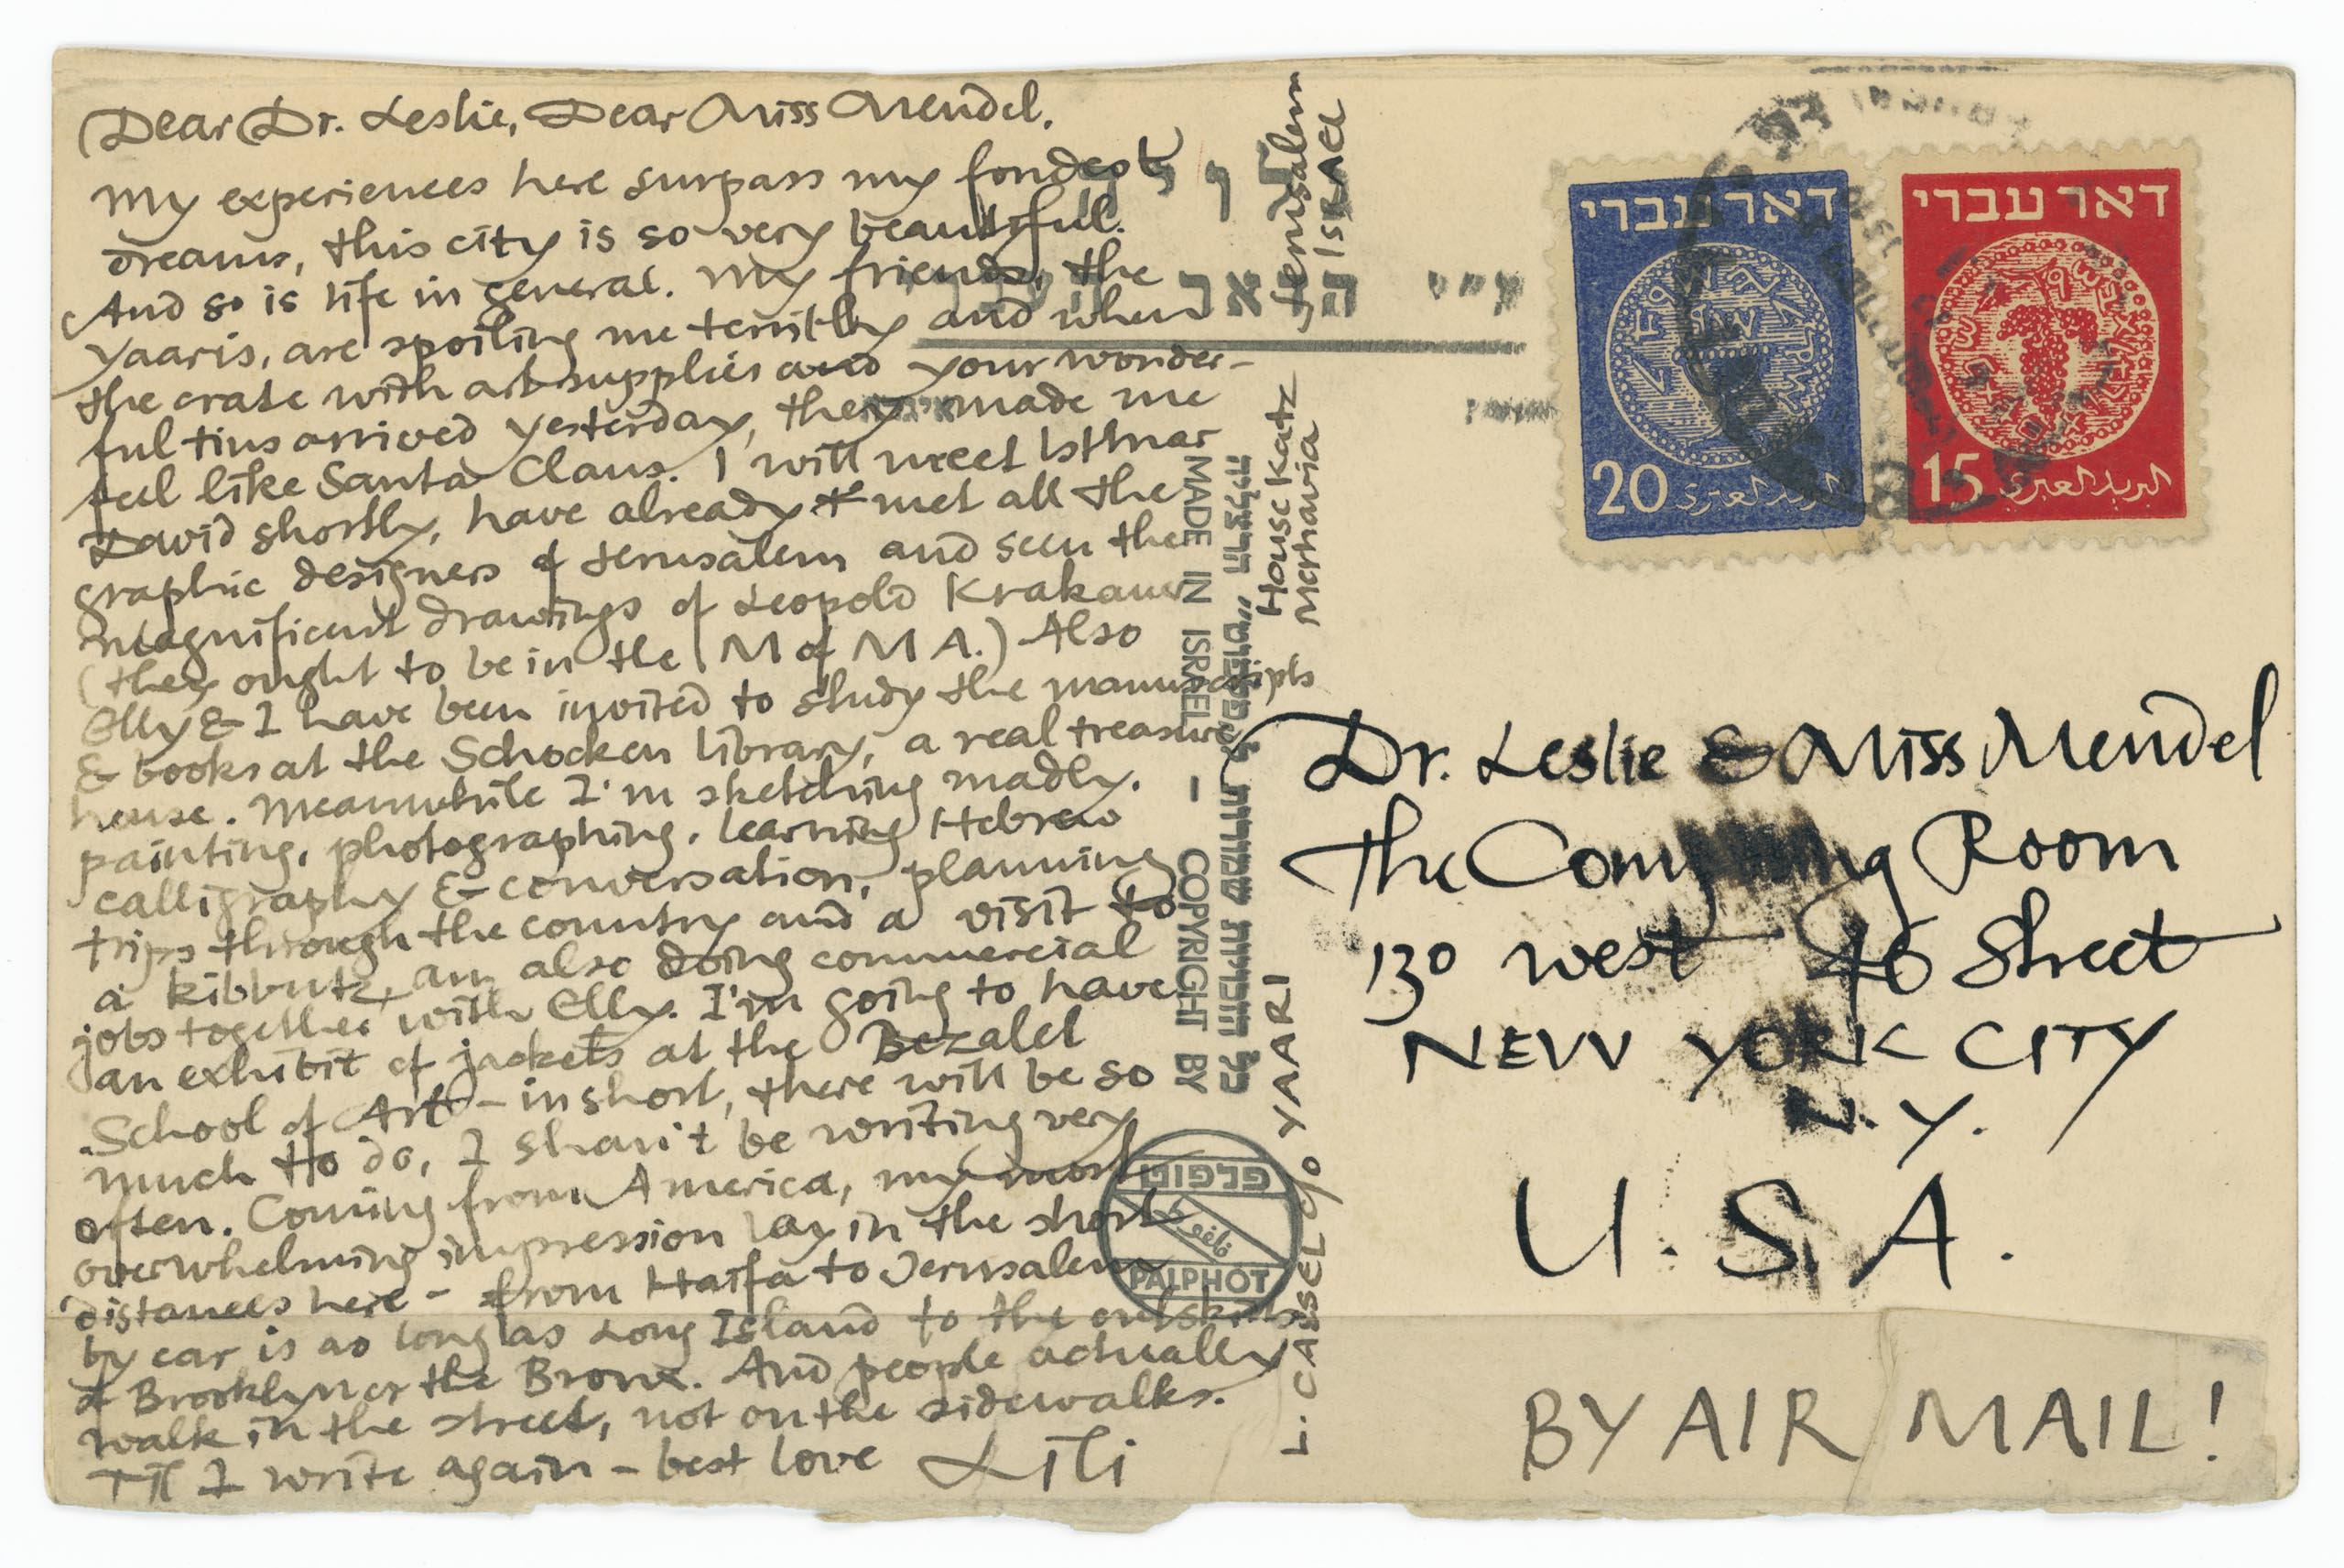 Dear Dr. Leslie, Dear Miss Mendel.
My experiences here surpass my fondest
dreams, this city is so very beautiful.
And so is life in general. My friends, the
Yaaris, are spoiling me terribly and when
the crate with art supplies and your wonder-
ful tins arrived yesterday, they made me
feel like Santa Claus. I will meet Isthmar
David shortly, have already met all the
graphic designers of Jerusalem and seen the
magnificent drawings of Leopold Krakauer
(they ought to be in the M of M A.) Also
Elly & I have been invited to study the manuscripts
& books at the Schocken library, a real treasure
house. Meanwhile I'm sketching madly.
painting, photographing, learning Hebrew
calligraphy & conversation, planning
trips through the country and a visit to
a kibbutz, am also doing commercial
jobs together with Elly. I'm going to have
an exhibit of jackets at the Bezalel
School of Art - in short, there will be so
much to do, I shan't be writing very
often. Coming from America, my most
overwhelming impression lay in the short
distances here - from Haifa to Jerusalem
by car is as long as Long Island to the outskirts
of Brooklyn or the Bronx. And people actually
walk in the street, not on the sidewalks.
Till I write again - best love Lili
L. CASSEL c/o YAARI
House Katz
Merhavia
Jerusalem
ISRAEL
MADE IN ISRAEL — COPYRIGHT BY
כל הזכויות שמורות
פלפוט
PALPHOT
דאר עברי
20
البريد العبري
דאר עברי
15
البريد العبري
Dr. Leslie & Miss Mendel
The Composing Room
130 West 46 Street
NEW YORK CITY
N.Y.
U.S.A.
BY AIR MAIL!